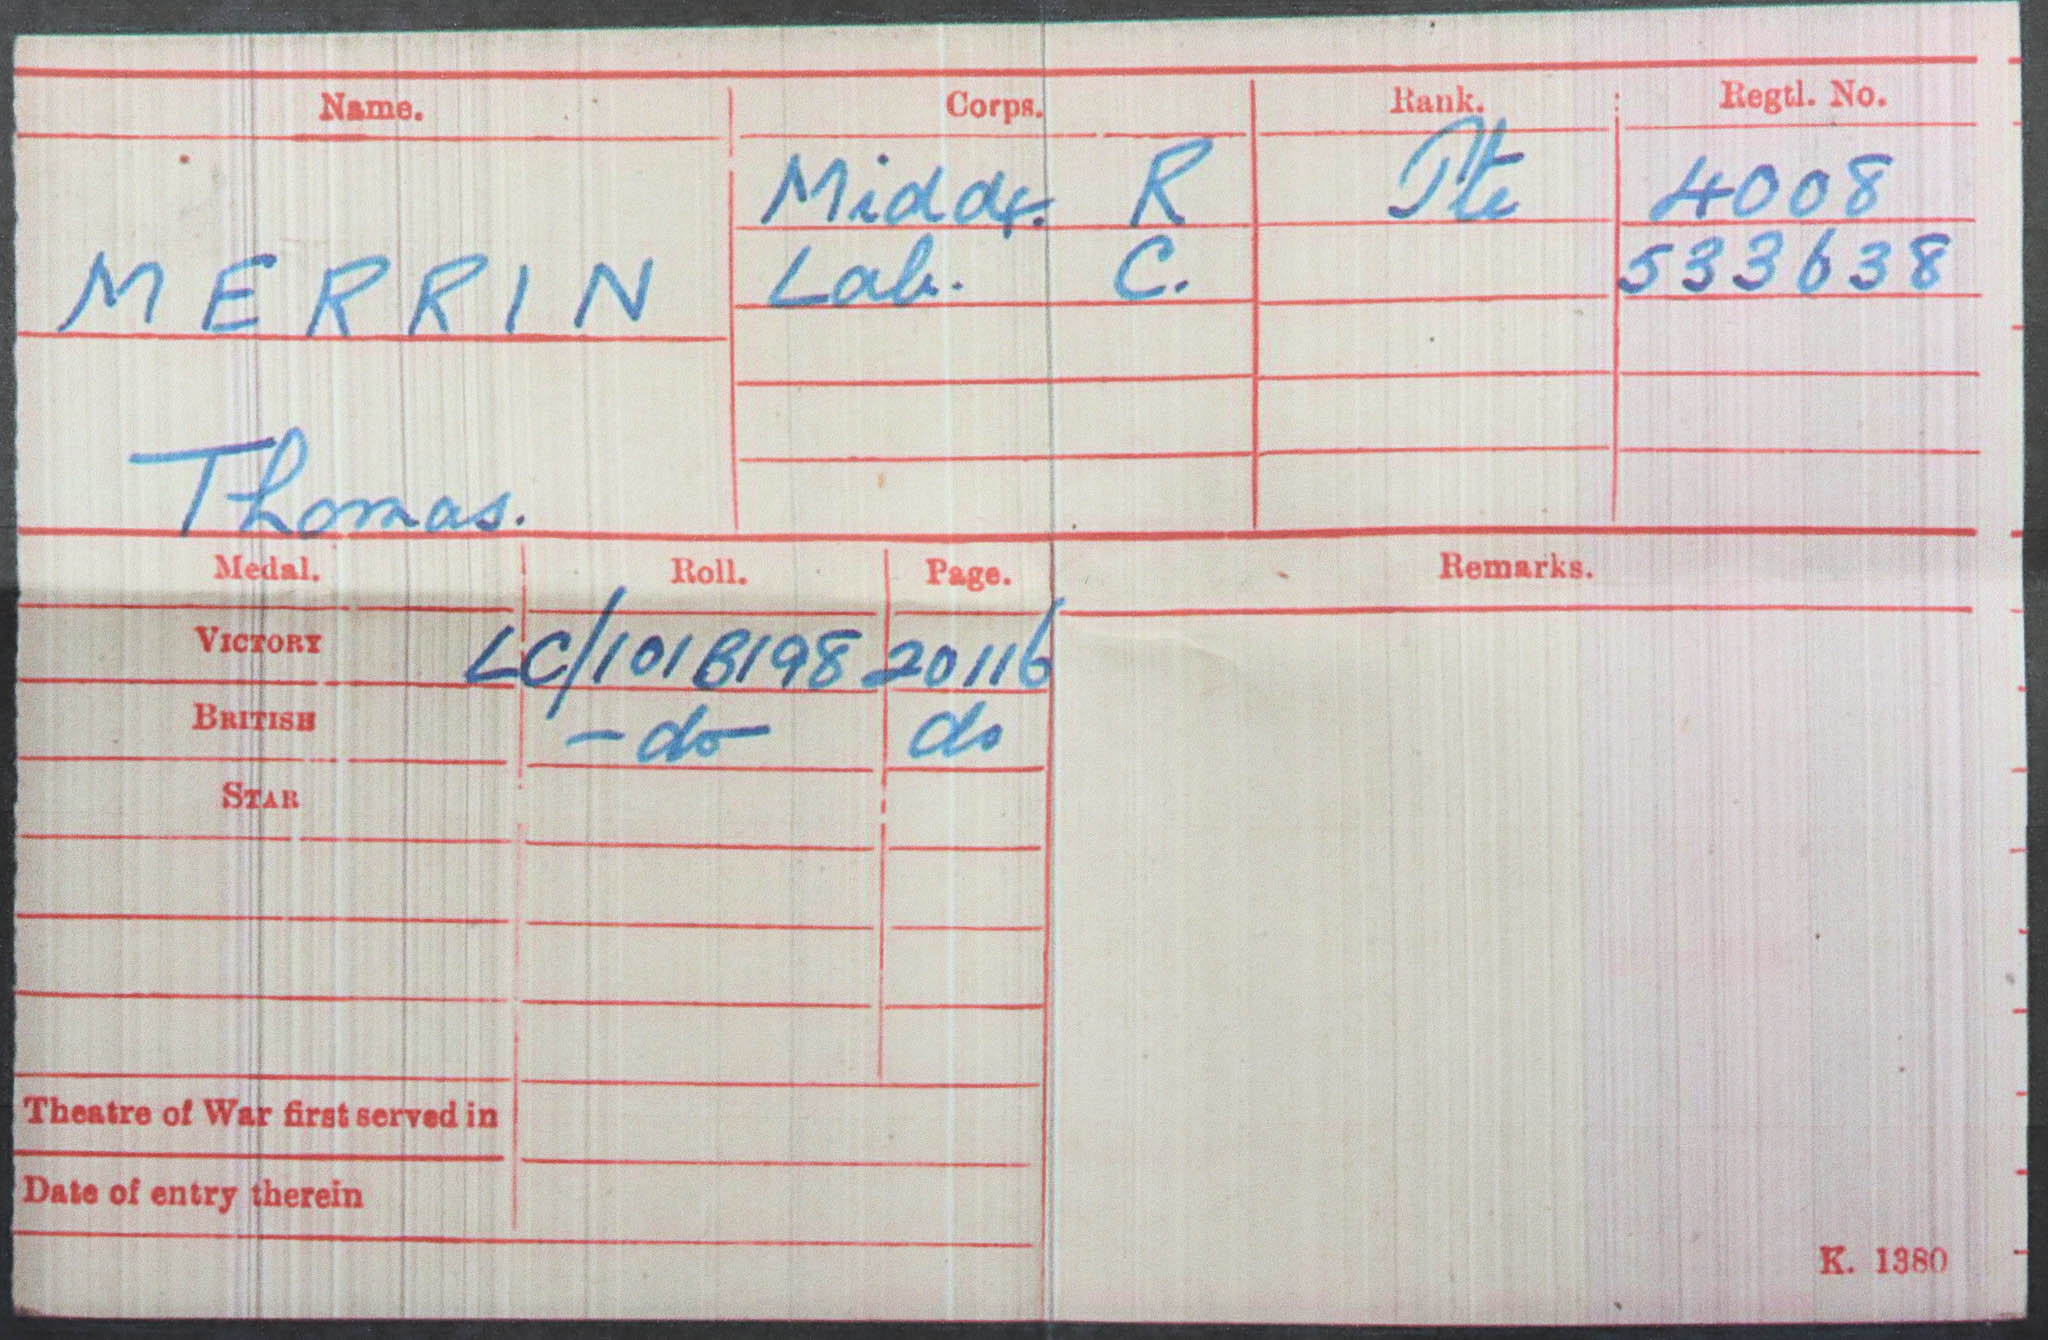 Name. Corps. Rank. Regtl. No.
Middx. R Pte 4008
MERRIN Lab. C. 533638
Thomas.
Medal. Roll. Page. Remarks.
VICTORY LC/101B198 20116
BRITISH -do- do
STAR
Theatre of War first served in
Date of entry therein
K. 1380